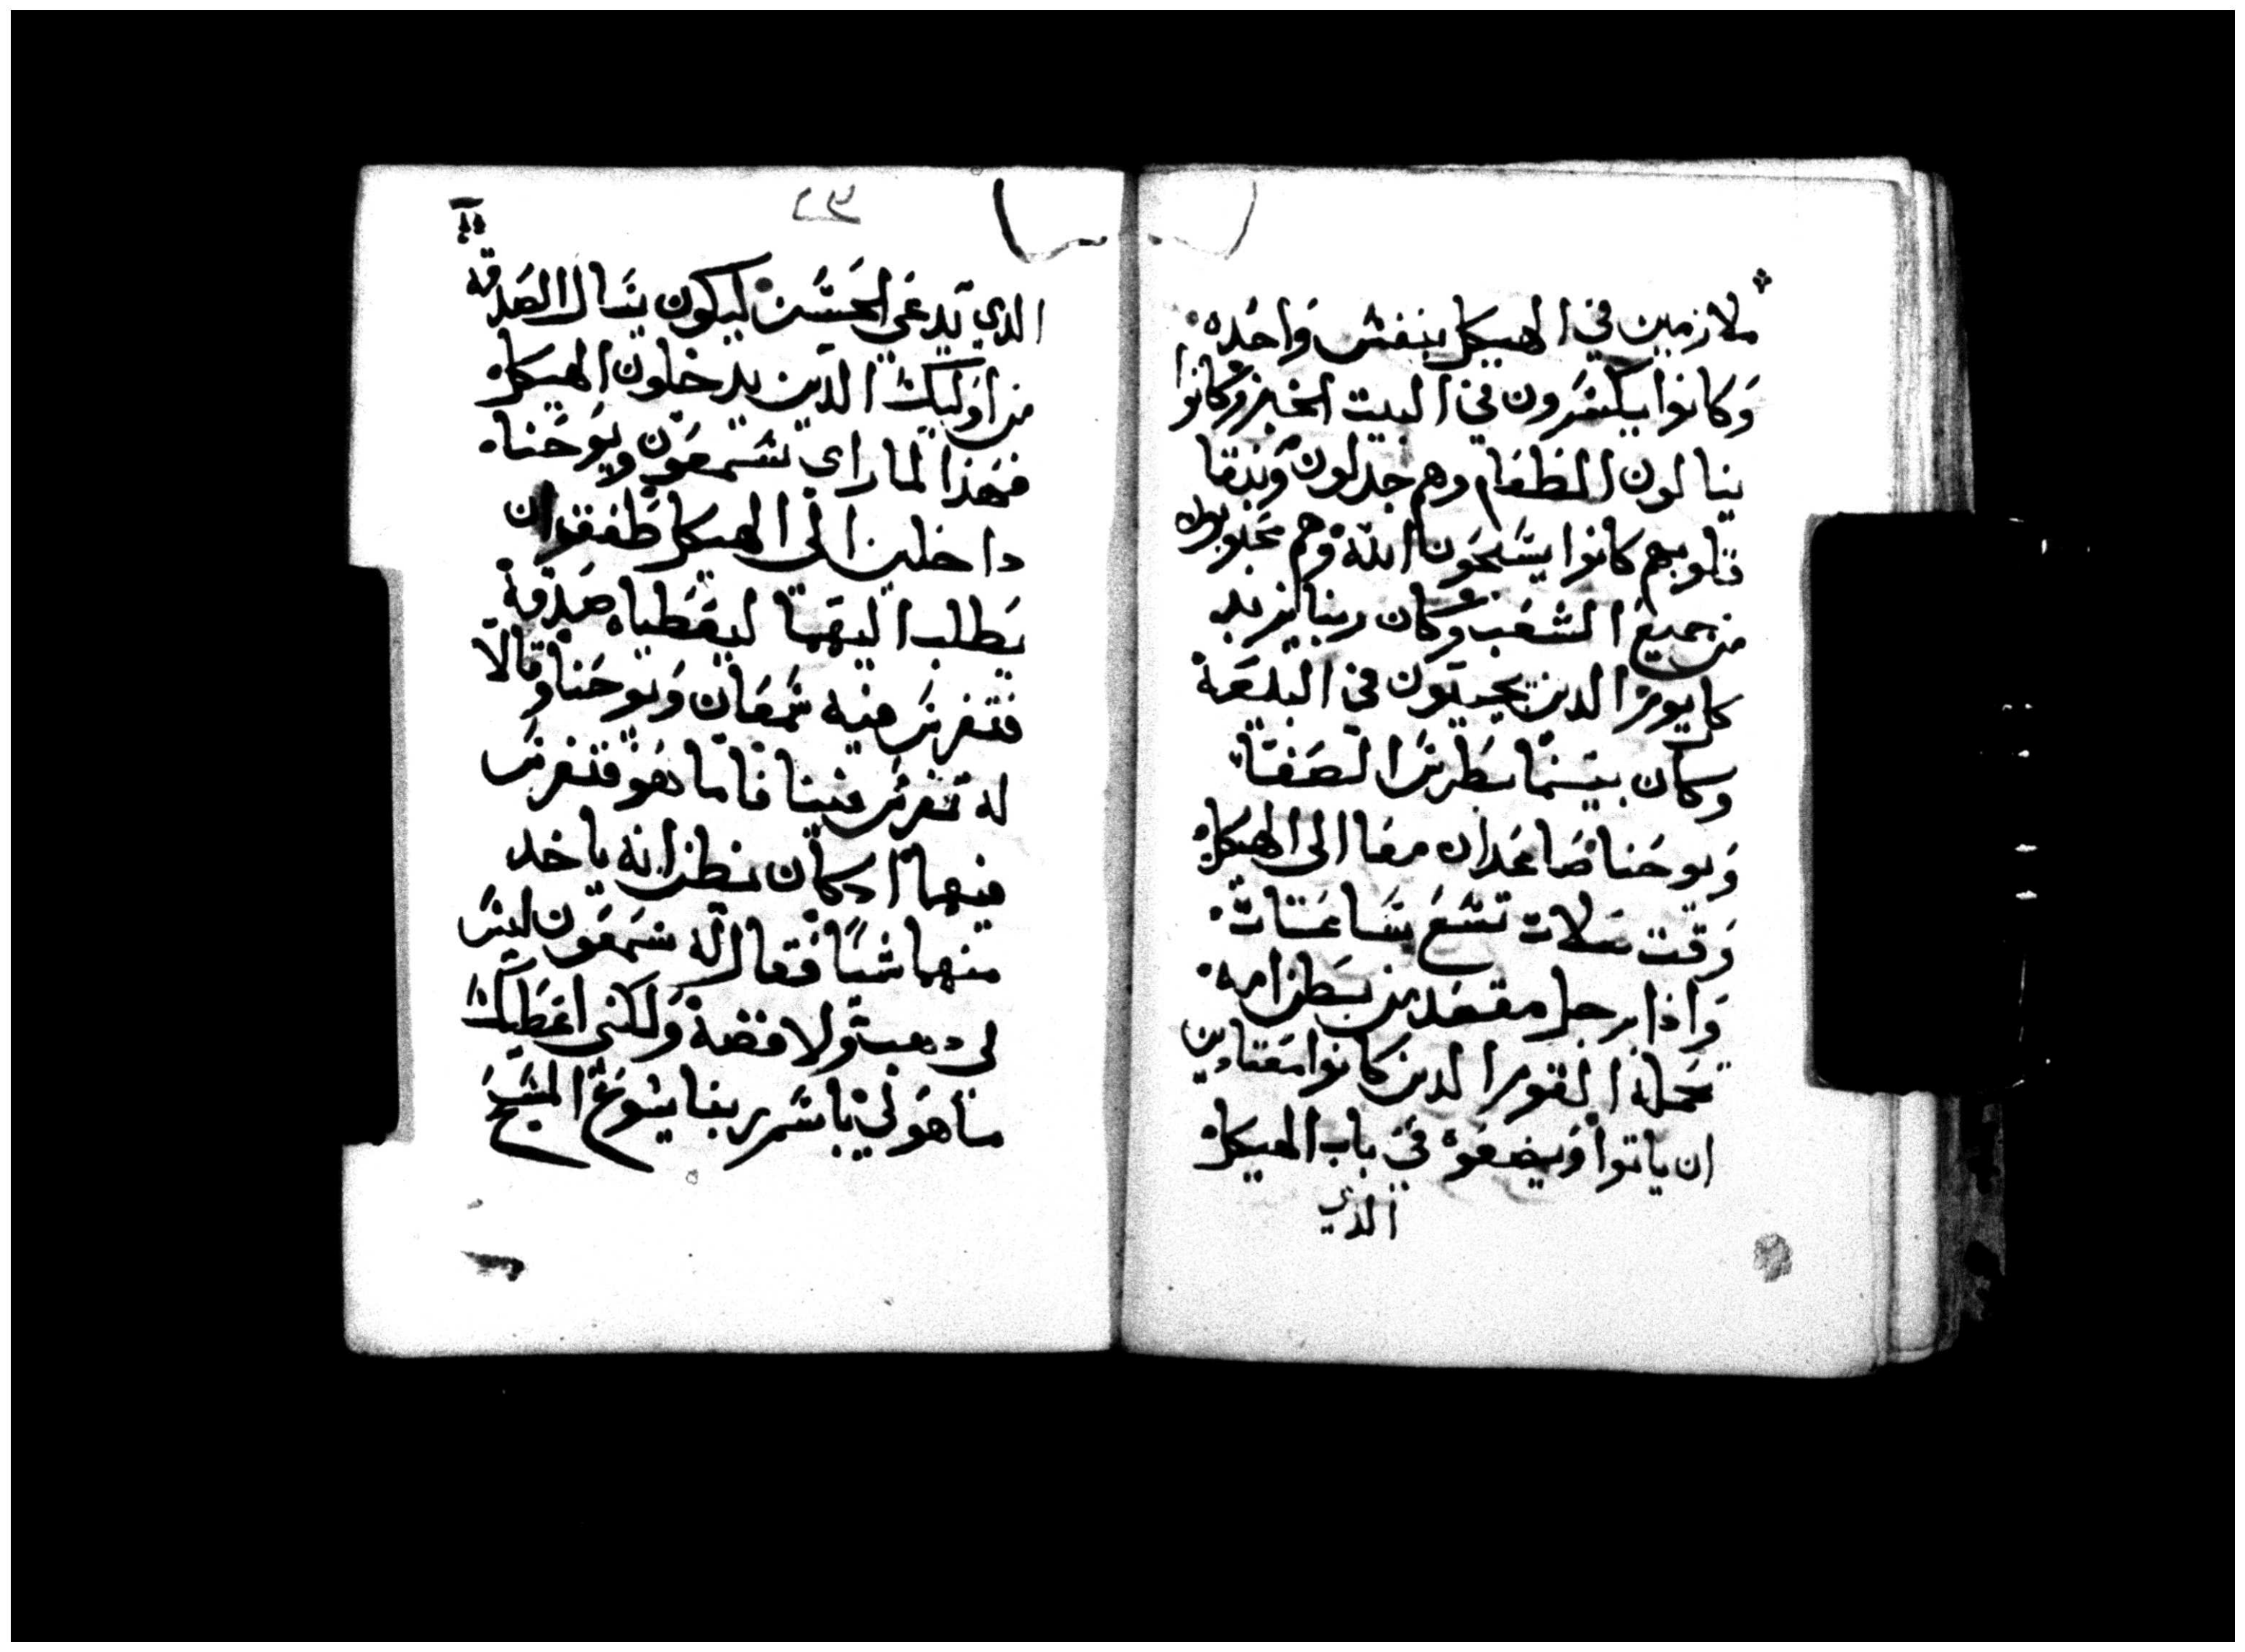 ملازمين في الهيكل بنفس واحده
وكانوا يكسرون في البيت الخبز وكانوا
ينالون الطعام وهم جدلون وبنقا
قلوبهم كانوا يسبحون الله وهم محبوبون
من جميع الشعب وكان ربنا يزيد
كل يوم الدين يحييون في البيعة
وكان بينما بطرس الصفا
ويوحنا صاعدان معا الى الهيكل
وقت صلات تسع ساعات
واذا برجل مقعد من بطن امه
حمله القوم الدين كانوا معتادين
ان ياتوا ويضعوه في باب الهيكل
الذي
٢٣
الذي يدعى الحسن ليكون يسال الصدقه
من اوليك الدين يدخلون الهيكل
فهذا لما راي شمعون ويوحنا
داخلين الى الهيكل طفق ان
يطلب اليهما ليعطياه صدقة
فتفرس فيه شمعان ويوحنا وقالا
له تفرس فينا فاما هو فتفرس
فيهما اد كان يظن انه ياخد
منهما شيا فقال له شمعون ليس
لي دهب ولا فضة ولكنى اعطيك
ما هو لي باسم ربنا يسوع المسيح